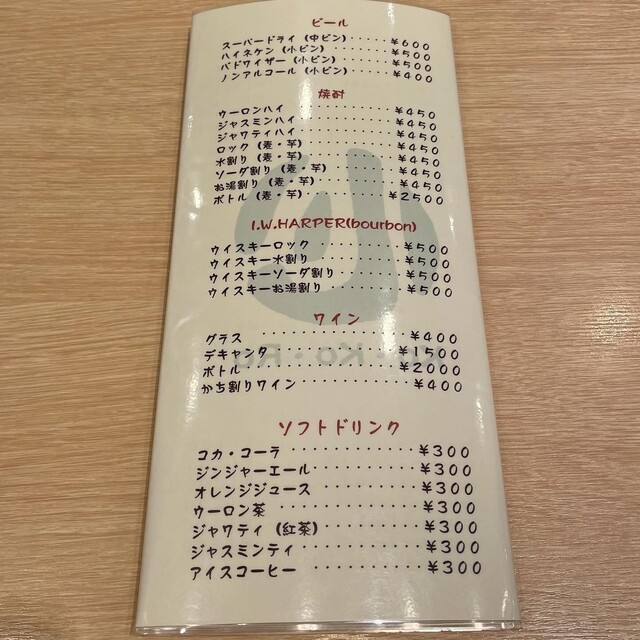 ビール
スーパードライ（中ビン）・・・・・￥600
ハイネケン（小ビン）・・・・・・・￥500
バドワイザー（小ビン）・・・・・・￥500
ノンアルコール（小ビン）・・・・・￥400
焼酎
ウーロンハイ ・・・・・・・・・・￥450
ジャスミンハイ・・・・・・・・・・￥450
ジャワティハイ・・・・・・・・・・￥450
ロック（麦・芋）・・・・・・・・・￥450
水割り（麦・芋）・・・・・・・・・￥450
ソーダ割り（麦・芋）・・・・・・・￥450
お湯割り（麦・芋）・・・・・・・・￥450
ボトル（麦・芋）・・・・・・・・・￥2500
I.W.HARPER(bourbon)
ウイスキーロック ・・・・・・・・￥500
ウイスキー水割り ・・・・・・・・￥500
ウイスキーソーダ割り・・・・・・・￥500
ウイスキーお湯割り ・・・・・・・￥500
ワイン
グラス ・・・・・・・・・・・・￥400
デキャンタ ・・・・・・・・・・￥1500
ボトル・・・・・・・・・・・・・￥2000
かち割りワイン ・・・・・・・・￥400
ソフトドリンク
コカ・コーラ ・・・・・・・・・￥300
ジンジャーエール・・・・・・・・￥300
オレンジジュース ・・・・・・・￥300
ウーロン茶 ・・・・・・・・・・￥300
ジャワティ（紅茶）・・・・・・・￥300
ジャスミンティ・・・・・・・・・￥300
アイスコーヒー ・・・・・・・・￥300